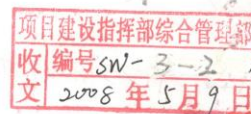 项目建设指挥部综合管理部
收文
编号SW-3-2
2008年5月9日